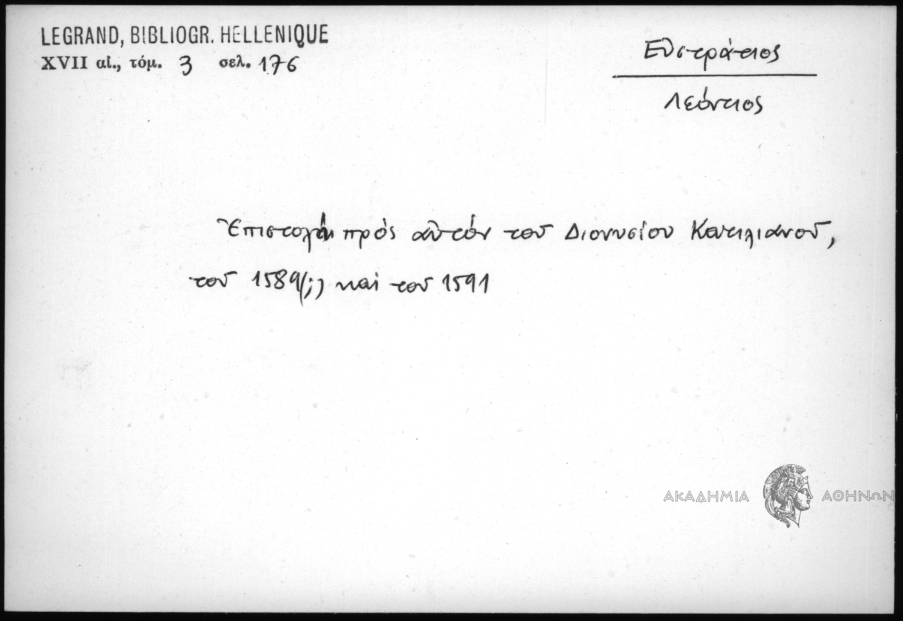 LEGRAND, BIBLIOGR. HELLENIQUE
XVII αἰ., τόμ. 3 σελ. 176
Εὐστράτιος
Λεόντιος
Ἐπιστολαὶ πρὸς αὐτὸν τοῦ Διονυσίου Κατιλιανοῦ,
τοῦ 1589(;) καὶ τοῦ 1591
ΑΚΑΔΗΜΙΑ ΑΘΗΝΩΝ